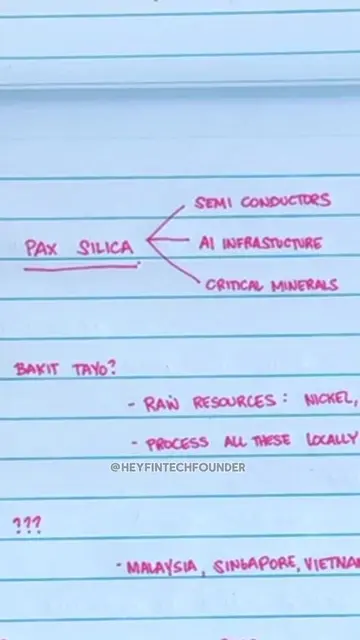 SEMI CONDUCTORS
PAX SILICA
AI INFRASTUCTURE
CRITICAL MINERALS
BAKIT TAYO?
- RAW RESOURCES: NICKEL,
- PROCESS ALL THESE LOCALLY
@HEYFINTECHFOUNDER
???
- MALAYSIA, SINGAPORE, VIETNA